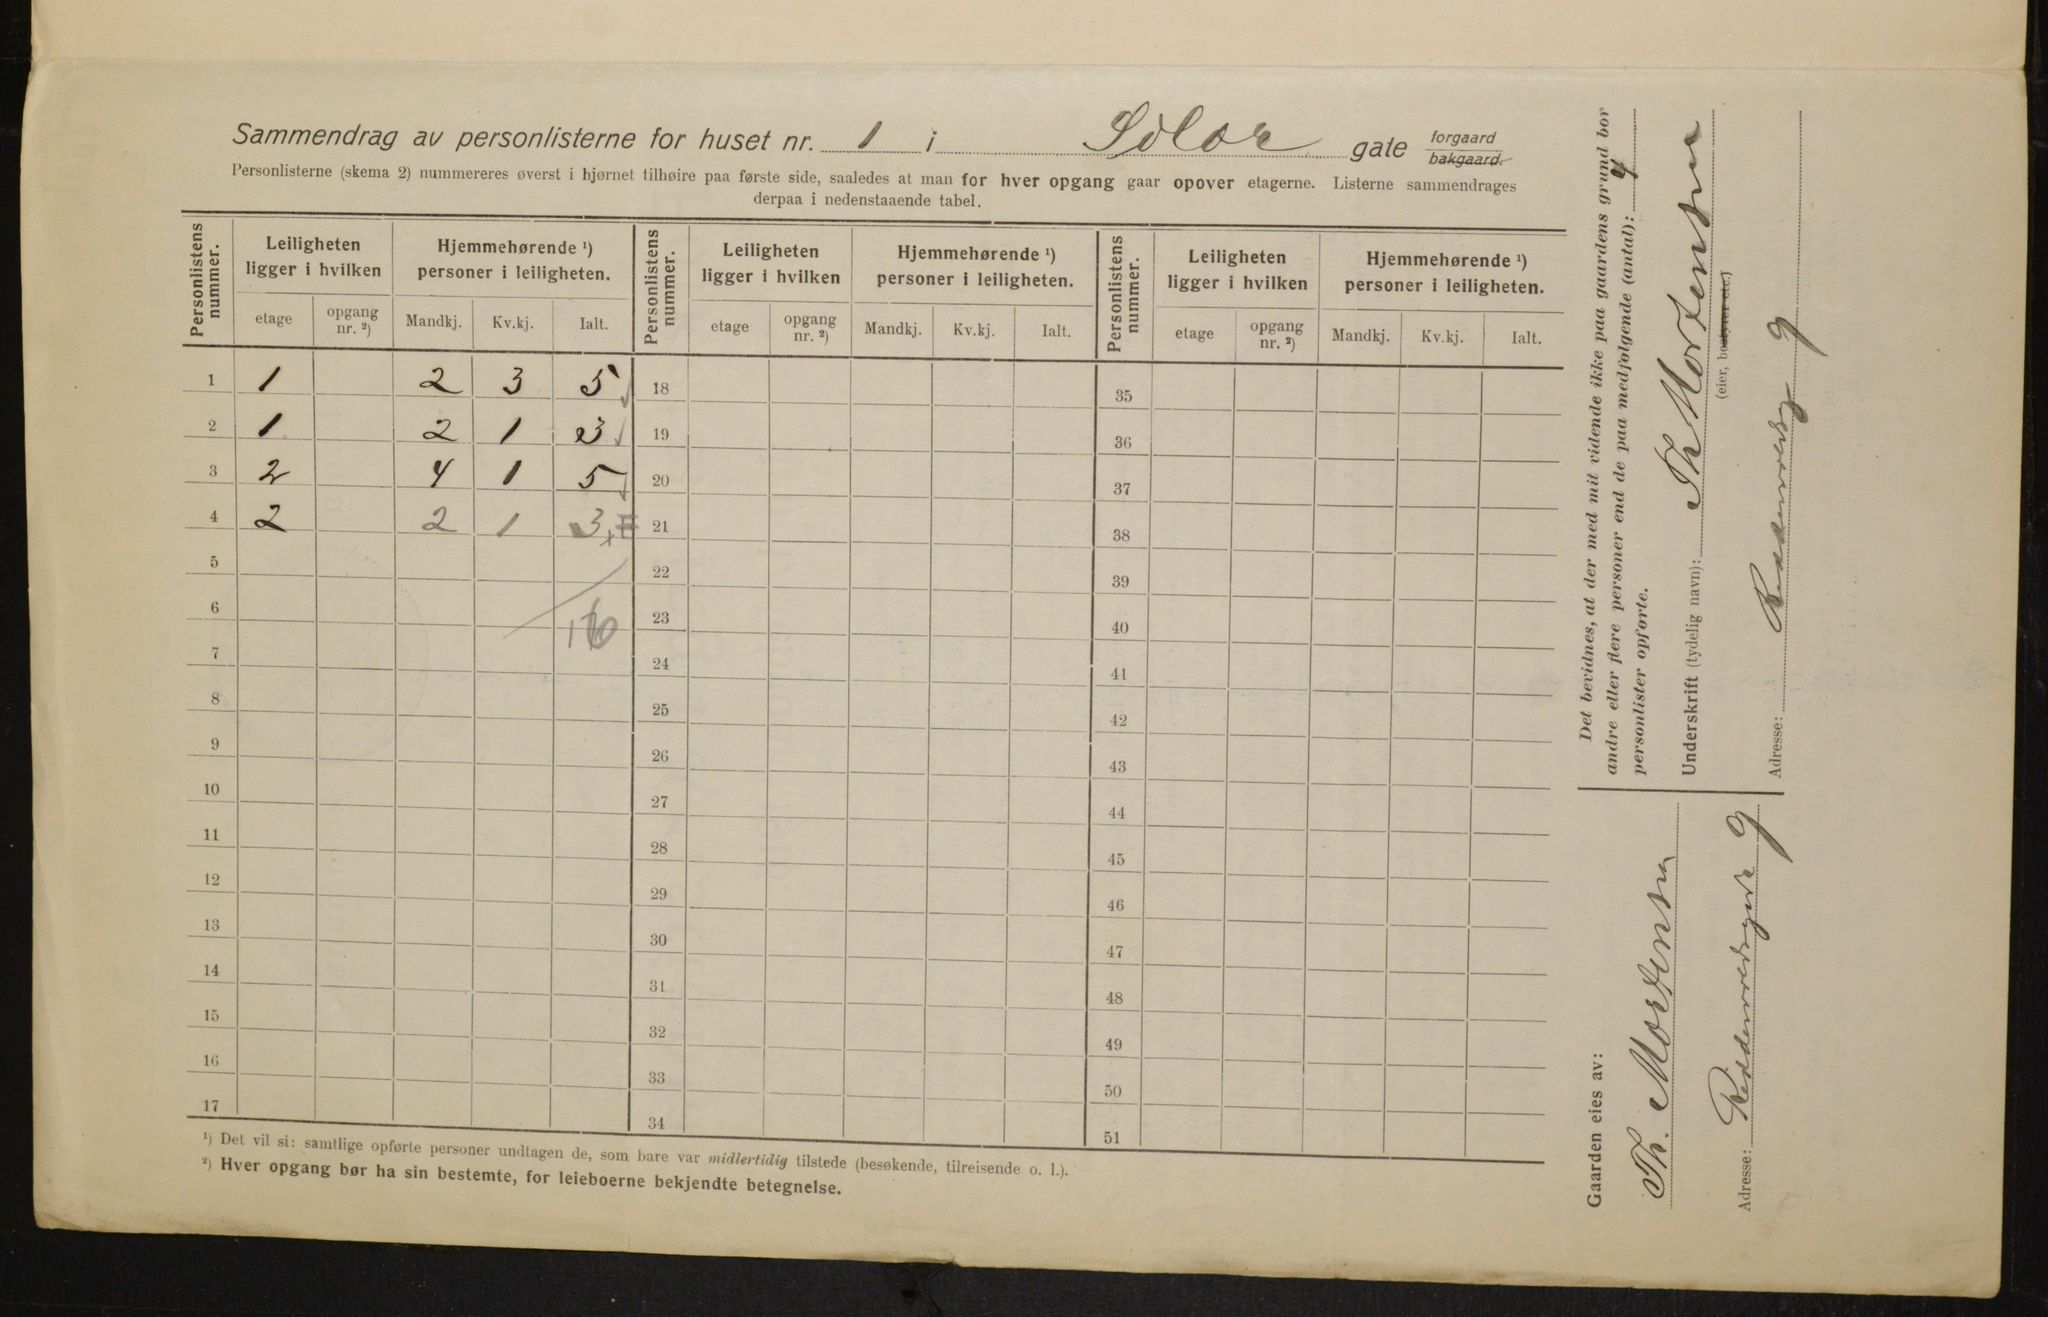 Sammendrag av personlisterne for huset nr. 1 i Solør gate forgaard bakgaard.
Personlisterne (skema 2) nummereres øverst i hjørnet tilhøire paa første side, saaledes at man for hver opgang gaar opover etagerne. Listerne sammendrages
derpaa i nedenstaaende tabel.
Personlistens nummer. Leiligheten ligger i hvilken Hjemmehørende ¹) personer i leiligheten. Personlistens nummer. Leiligheten ligger i hvilken Hjemmehørende ¹) personer i leiligheten. Personlistens nummer. Leiligheten ligger i hvilken Hjemmehørende ¹) personer i leiligheten.
etage opgang nr. ²) Mandkj. Kv.kj. Ialt. etage opgang nr. ²) Mandkj. Kv.kj. Ialt. etage opgang nr. ²) Mandkj. Kv.kj. Ialt.
1 1 2 3 5 18 35
2 1 2 1 3 19 36
3 2 4 1 5 20 37
4 2 2 1 3 21 38
5 22 39
6 16 23 40
7 24 41
8 25 42
9 26 43
10 27 44
11 28 45
12 29 46
13 30 47
14 31 48
15 32 49
16 33 50
17 34 51
¹) Det vil si: samtlige opførte personer undtagen de, som bare var midlertidig tilstede (besøkende, tilreisende o. l.).
²) Hver opgang bør ha sin bestemte, for leieboerne bekjendte betegnelse.
Det bevidnes, at der med mit vidende ikke paa gaardens grund bor
andre eller flere personer end de paa medfølgende (antal): 4
personlister opførte.
Underskrift (tydelig navn): Th Mortensen
(eier, bestyrer etc.)
Adresse: 9
Gaarden eies av:
Th. Mortensen
Adresse: 9